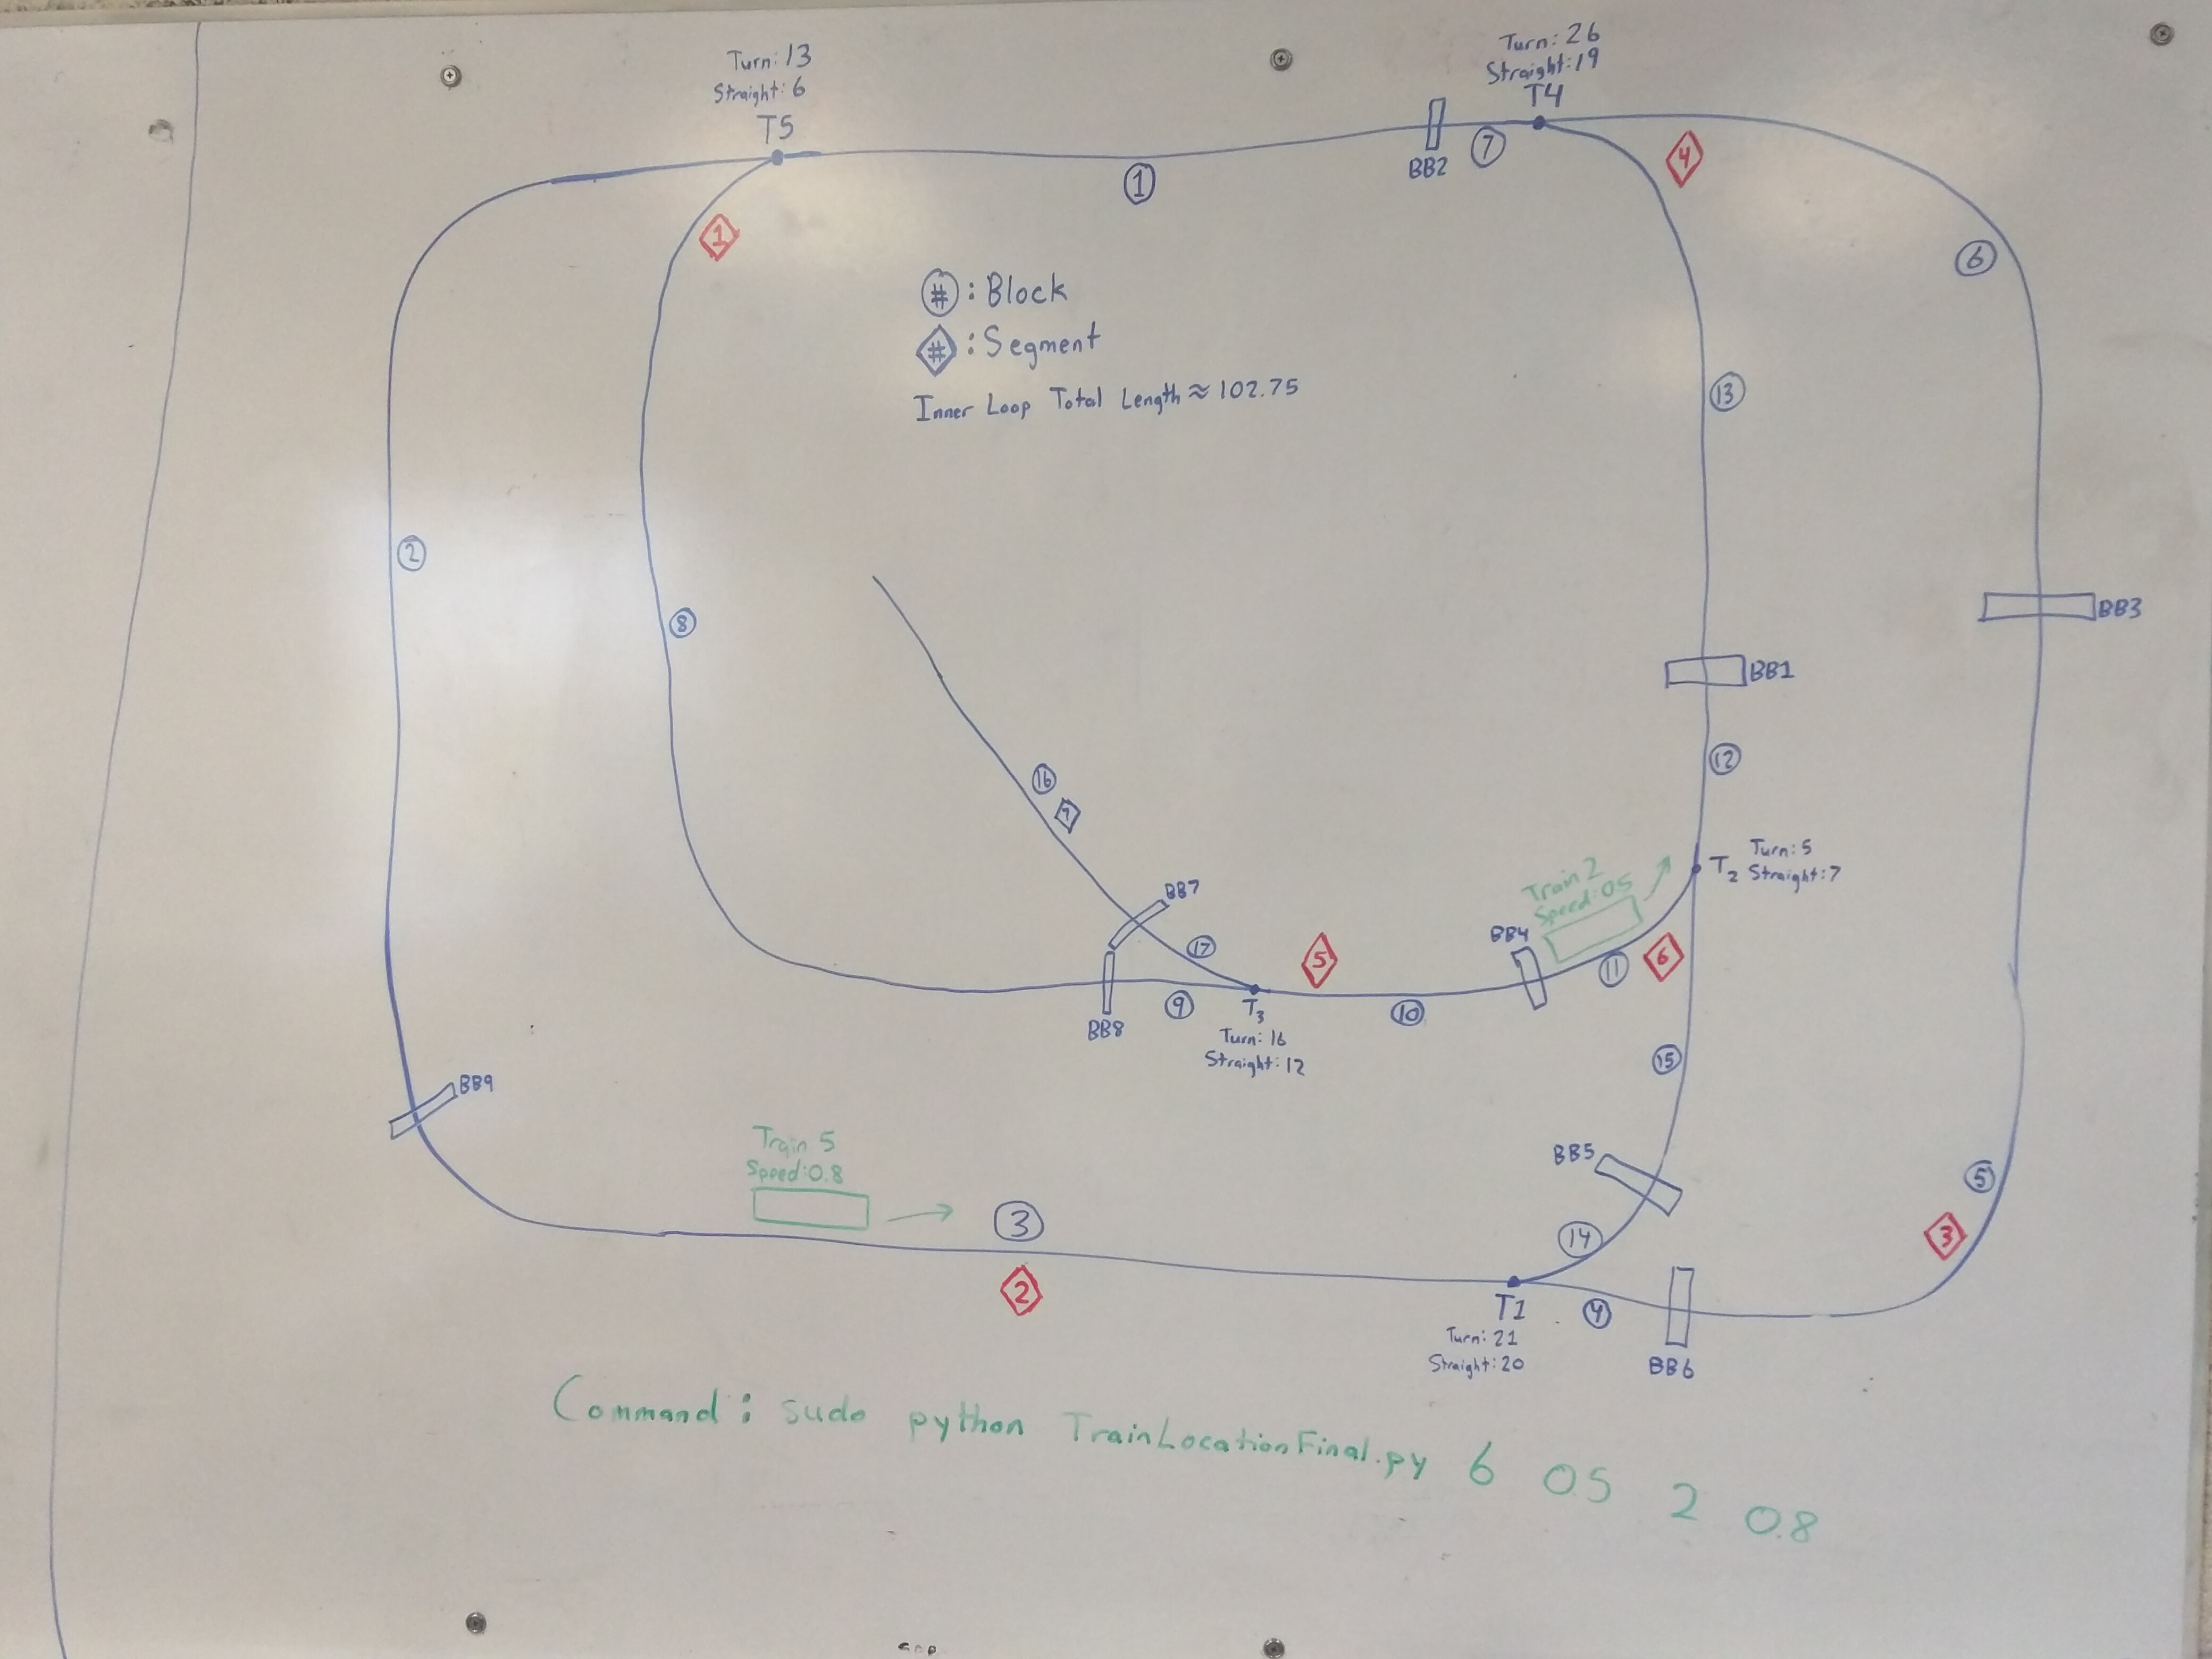 Turn: 13
Straight: 6
T5
Turn: 26
Straight: 19
T4
BB2
7
4
1
1
6
#: Block
#: Segment
Inner Loop Total Length ≈ 102.75
13
2
8
BB3
BB1
12
16
7
T2
Turn: 5
Straight: 7
Train 2
Speed: 05
BB7
BB4
17
5
11
6
9
T3
10
BB8
Turn: 16
Straight: 12
15
BB9
Train 5
Speed: 0.8
BB5
5
3
14
3
2
T1
4
Turn: 21
Straight: 20
BB6
Command: sudo python TrainLocationFinal.py 6 05 2 0.8